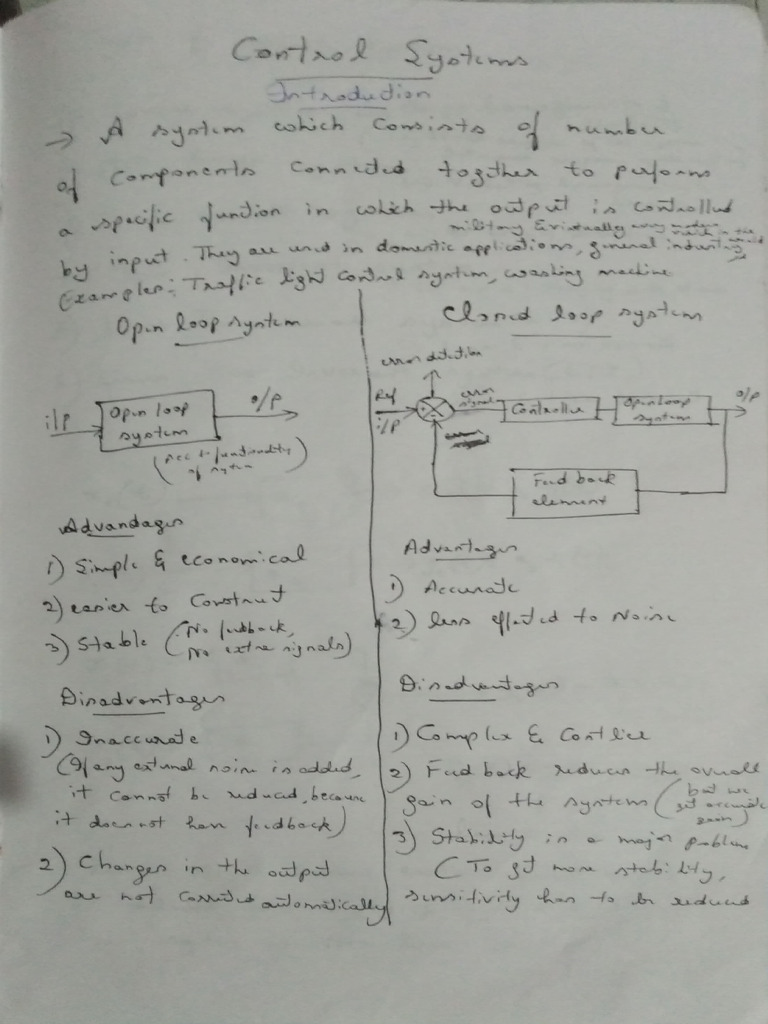 Control Systems
Introduction
→ A system which consists of number
of components connected together to perform
a specific function in which the output is controlled
by input. They are used in domestic applications, general industry
military & virtually every modern
Examples: Traffic light control system, washing machine
Open loop system
i/p
Open loop
system
o/p
(Acc to functionality
of system)
Advandages
1) Simple & economical
2) easier to Construct
3) Stable (No feedback,
No extra signals)
Disadvantages
1) Inaccurate
(If any external noise is added,
it cannot be reduced, because
it does not have feedback)
2) Changes in the output
are not corrected automatically
Closed loop system
error detection
Ref
i/p
error
signal
Controller
Open loop
system
o/p
Feed back
element
Advantages
1) Accurate
2) less effected to Noise
Disadvantages
1) Complex & Costlier
2) Feed back reduces the overall
gain of the system (but we
get accurate
gain)
3) Stability is a major problem
(To get more stability,
sensitivity has to be reduced